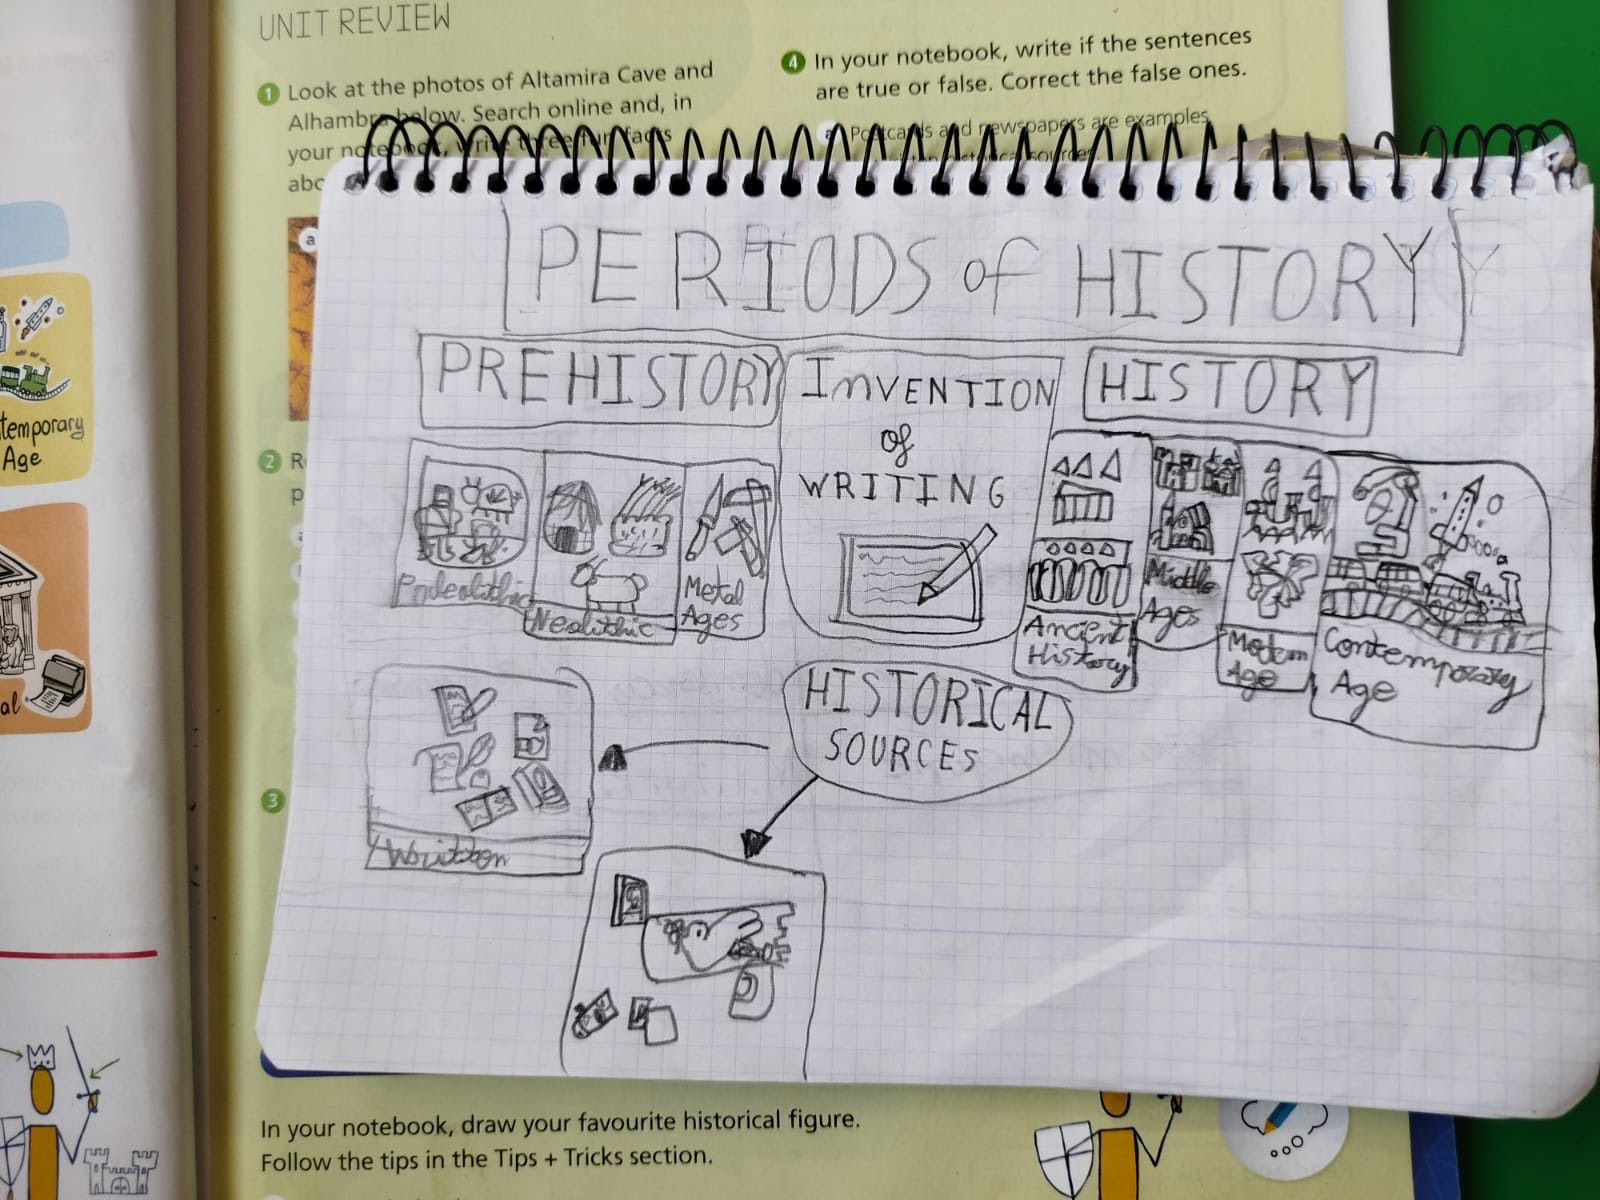 UNIT REVIEW
1 Look at the photos of Altamira Cave and
Alhambra below. Search online and, in
your notebook, write three fun facts
abo
a
2 R
p
3
4 In your notebook, write if the sentences
are true or false. Correct the false ones.
a Postcards and newspapers are examples
temporary
Age
al
PERIODS of HISTORY
PREHISTORY
INVENTION
of
WRITING
HISTORY
Neolithic
Metal
Ages
Ancient
History
Middle
Ages
Modern
Age
Contemporary
Age
HISTORICAL
SOURCES
Written
In your notebook, draw your favourite historical figure.
Follow the tips in the Tips + Tricks section.